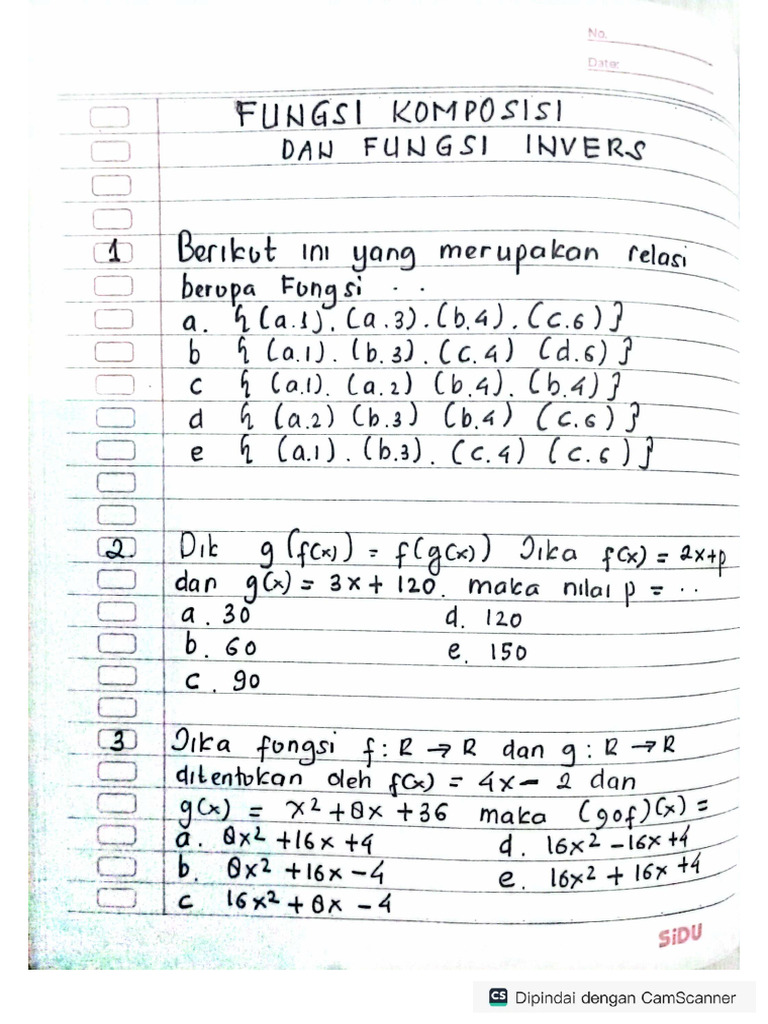 No.
Date:
FUNGSI KOMPOSISI
DAN FUNGSI INVERS
1 Berikut ini yang merupakan relasi
berupa Fungsi . .
a. {(a.1). (a.3). (b.4). (c.6)}
b { (a.1). (b.3). (c.4) (d.6)}
c { (a.1). (a.2) (b.4). (b.4)}
d { (a.2) (b.3) (b.4) (c.6)}
e { (a.1). (b.3). (c.4) (c.6)}
2 Dik g(f(x)) = f(g(x)) Jika f(x) = 2x+p
dan g(x) = 3x + 120. maka nilai p = ..
a. 30 d. 120
b. 60 e. 150
c. 90
3 Jika fungsi f : R → R dan g : R → R
ditentukan oleh f(x) = 4x - 2 dan
g(x) = x² + 8x + 36 maka (gof)(x) =
a. 8x² + 16x + 4 d. 16x² - 16x + 4
b. 8x² + 16x - 4 e. 16x² + 16x + 4
c 16x² + 8x - 4
SiDU
CS Dipindai dengan CamScanner